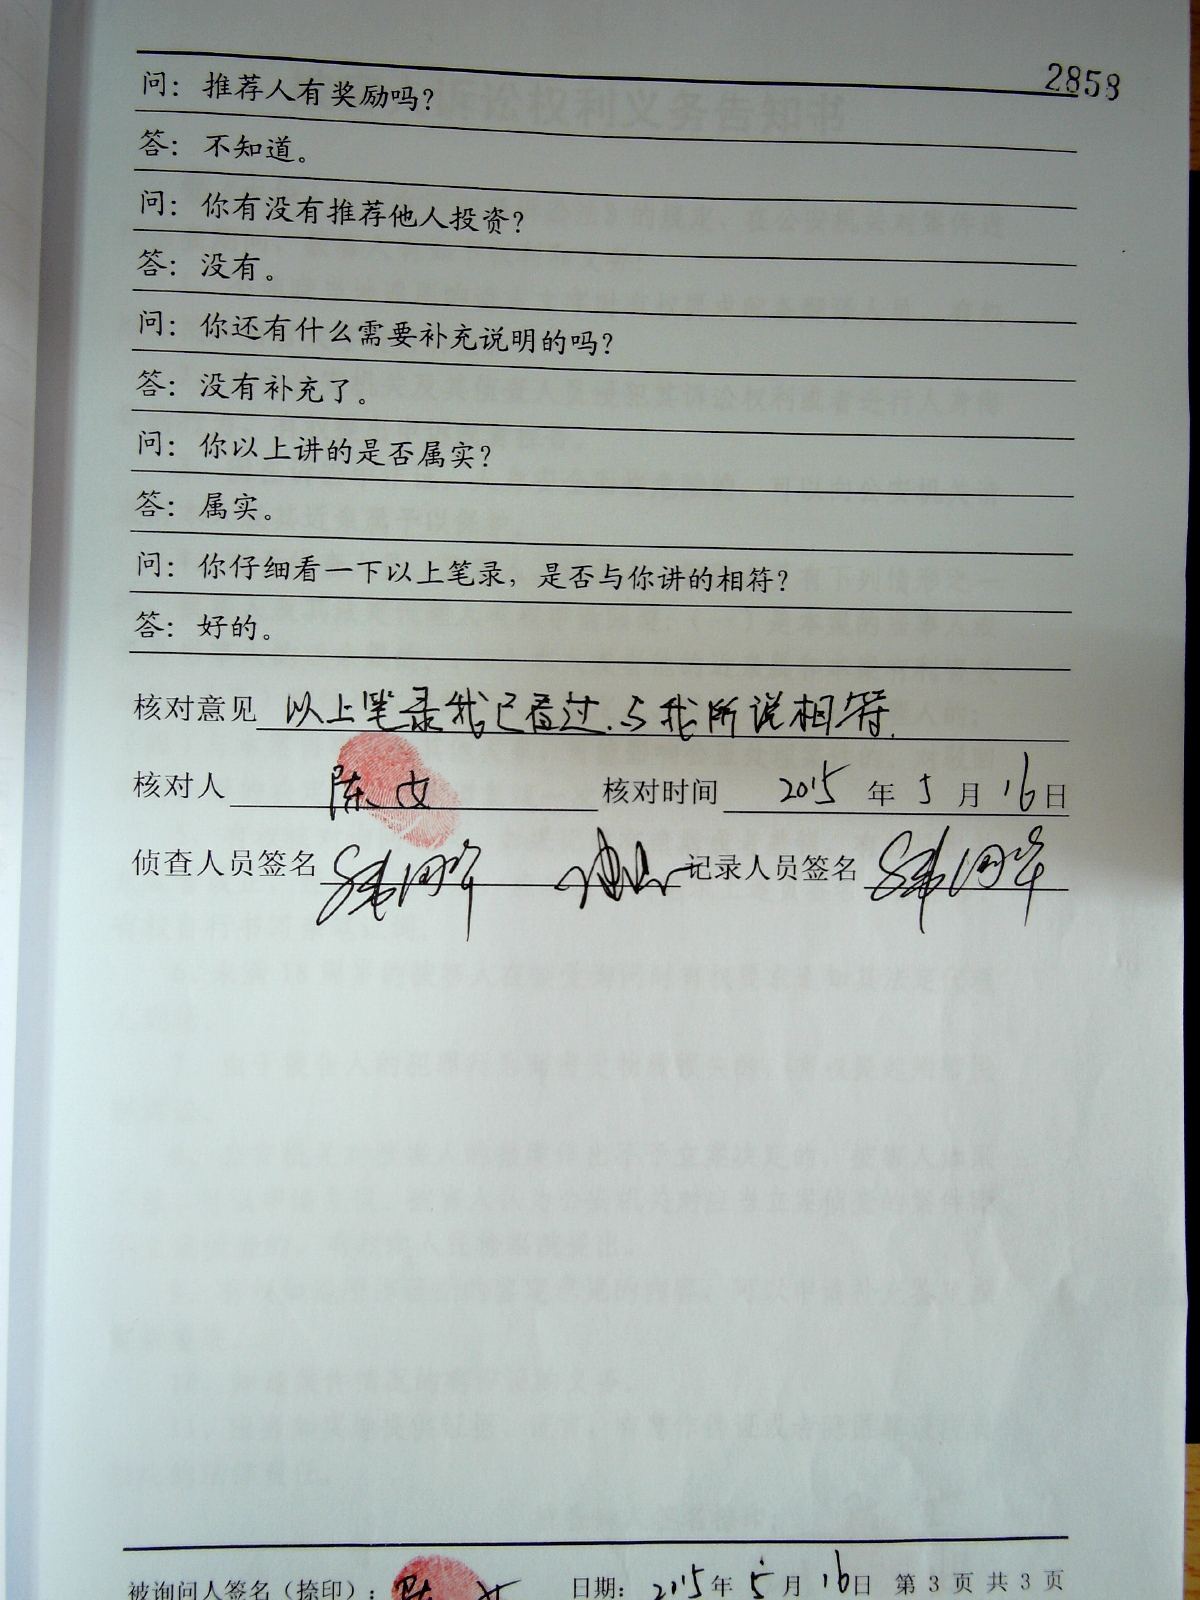 2858
问：推荐人有奖励吗？
答：不知道。
问：你有没有推荐他人投资？
答：没有。
问：你还有什么需要补充说明的吗？
答：没有补充了。
问：你以上讲的是否属实？
答：属实。
问：你仔细看一下以上笔录，是否与你讲的相符？
答：好的。
核对意见 以上笔录我已看过.与我所说相符.
核对人 陈 核对时间 2015 年 5 月 16 日
侦查人员签名 记录人员签名
被询问人签名（捺印）：陈 日期：2015 年 5 月 16 日 第 3 页 共 3 页